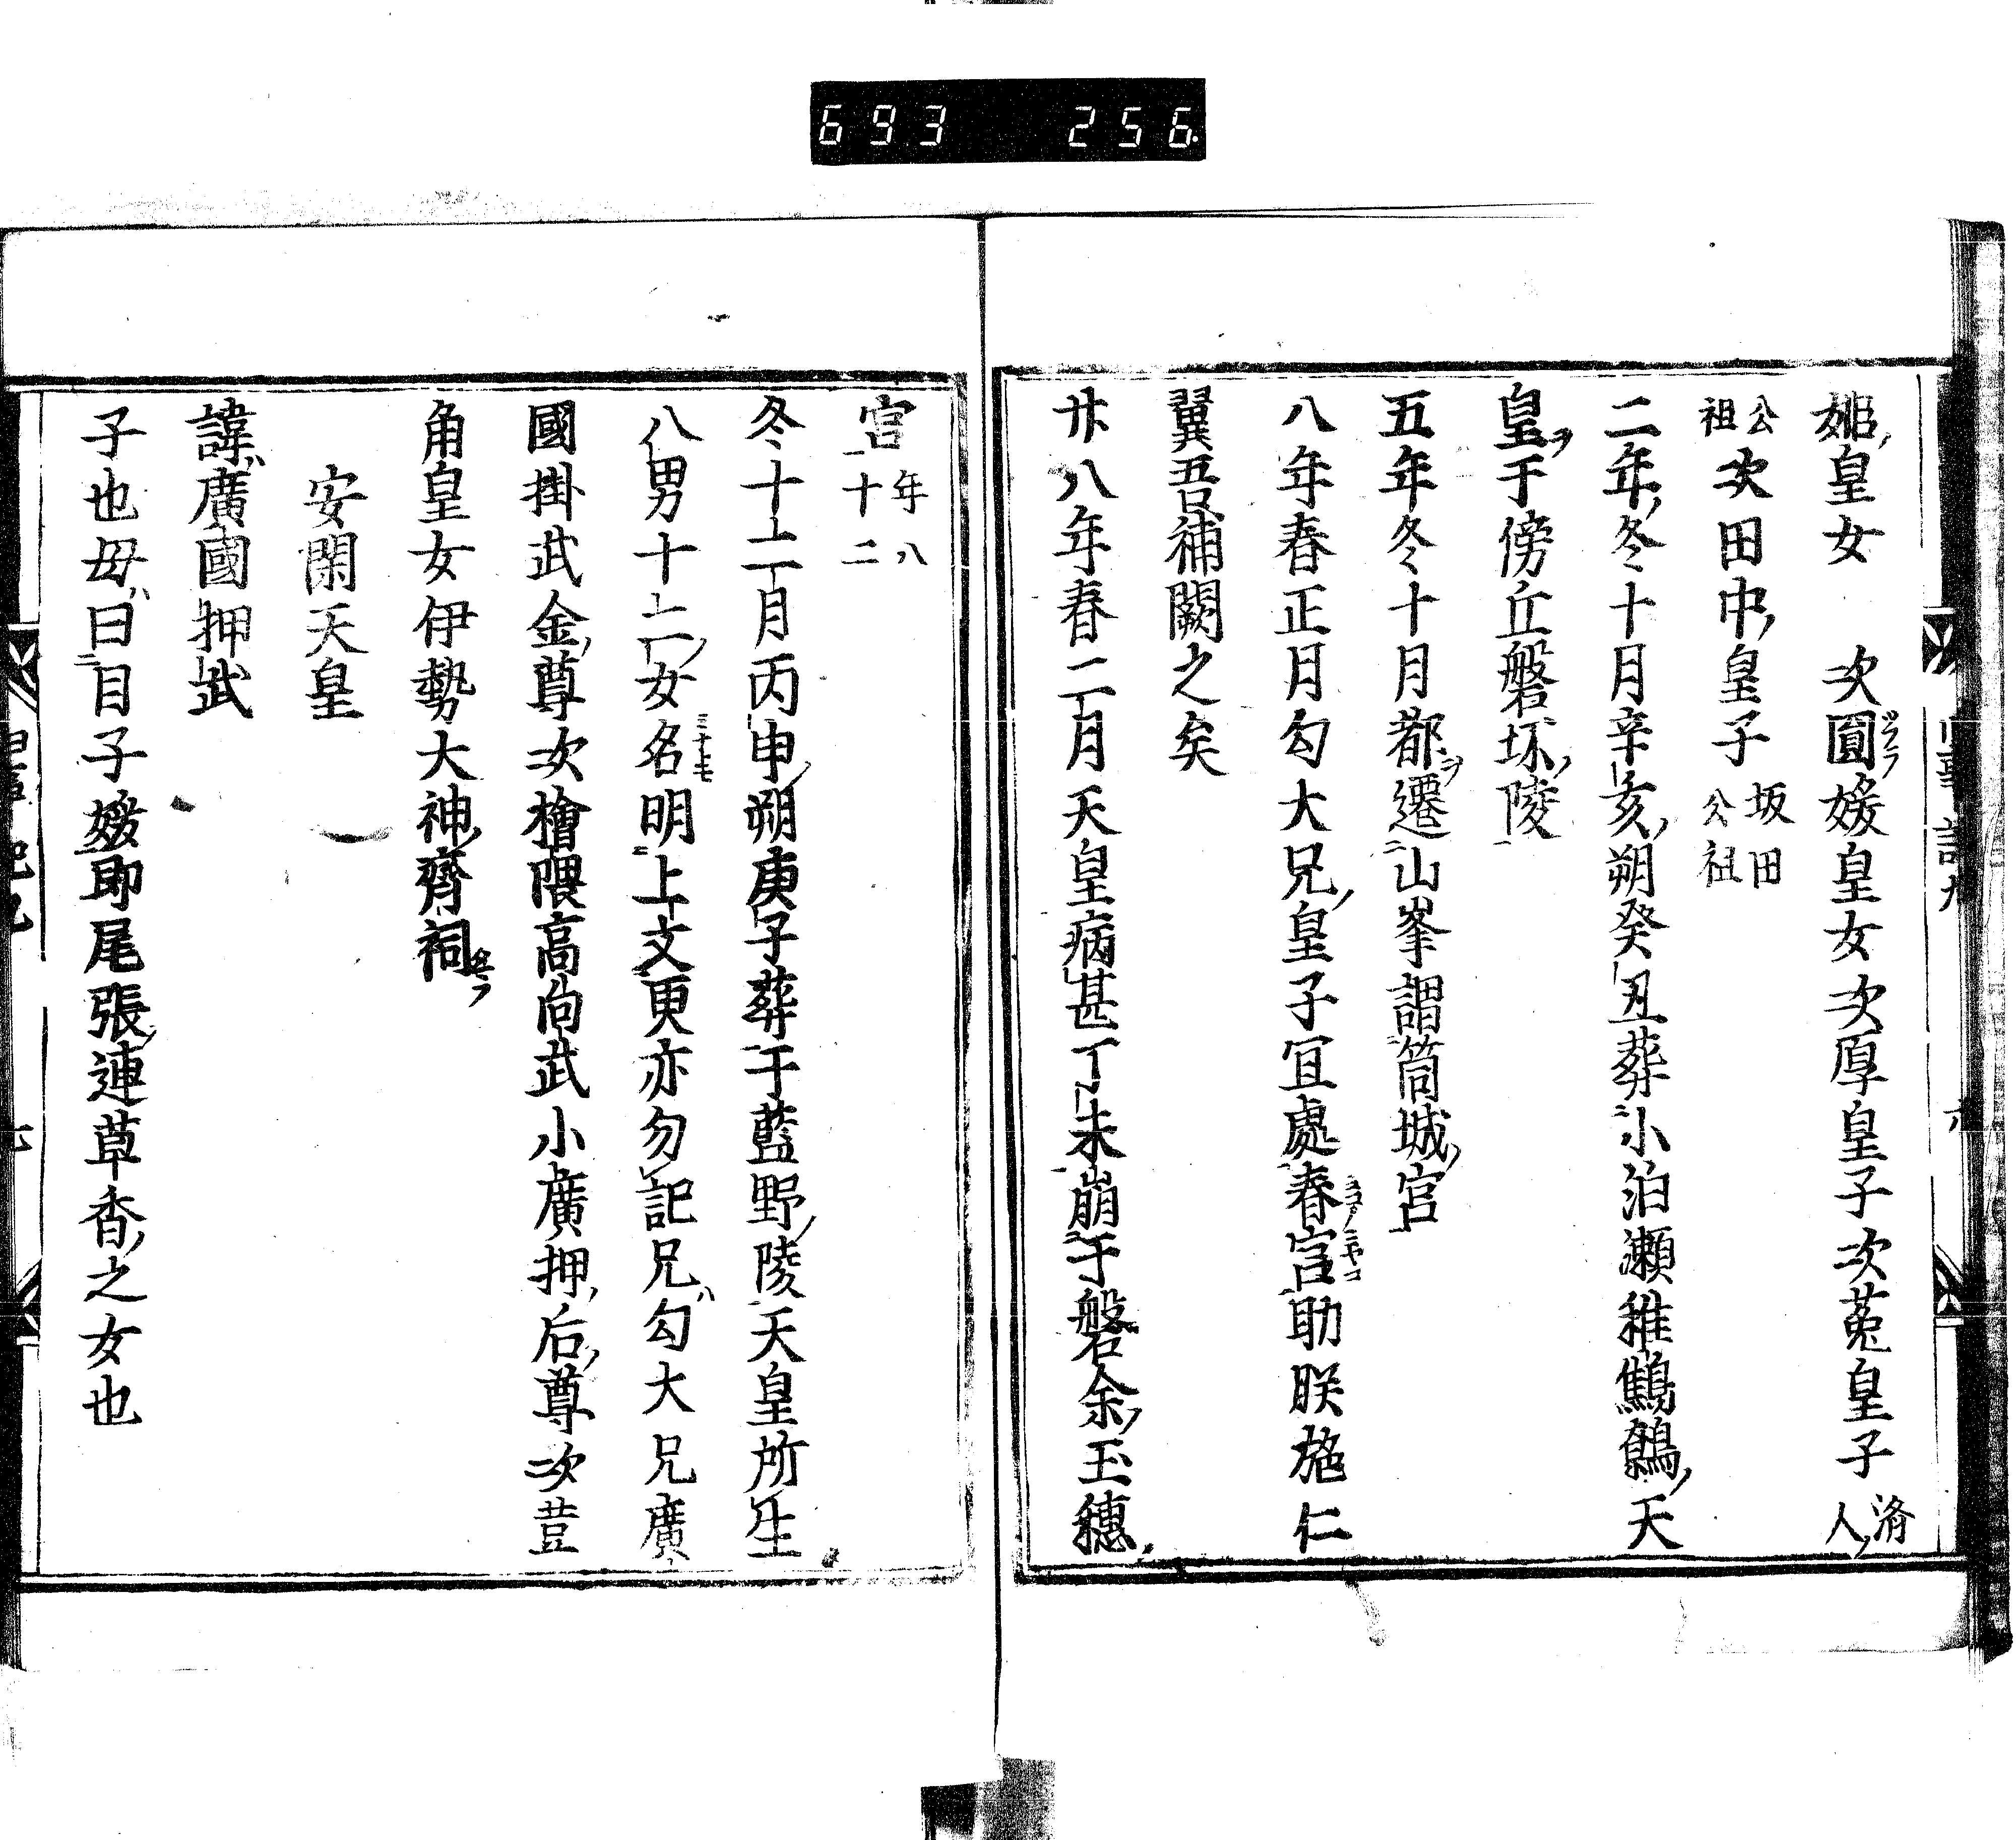 693 256
姫皇女 次圓媛皇女次厚皇子次菟皇子酒人
公祖次田中皇子坂田公祖
二年冬十月辛亥朔癸丑葬小泊瀬稚鷦鷯天
皇于傍丘磐坏陵
五年冬十月都遷山峯謂筒城宮
八年春正月勾大兄皇子宜處春宮助朕施仁
翼吾補闕之矣
廿八年春二月天皇病甚丁未崩于磐余玉穗
宮年八十二
冬十二月丙申朔庚子葬于藍野陵天皇所生
八男十二女名明上文更亦勿記兄勾大兄廣
國掛武金尊次檜隈高向武小廣押后尊次荳
角皇女伊勢大神齊祠
安閑天皇
諱廣國押武
子也母曰目子媛即尾張連草香之女也